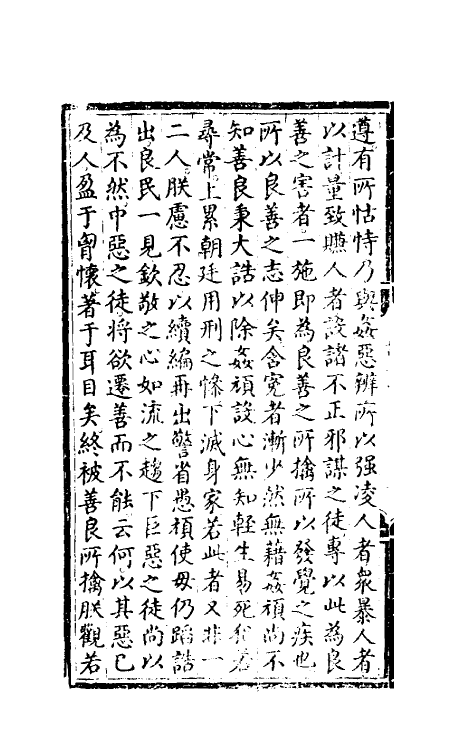 遵有所怙恃乃與姦惡辨所以强凌人者衆暴人者
以計量致賺人者設諸不正邪謀之徒專以此為良
善之害者一施即為良善之所擒所以發覺之疾也
所以良善之志伸矣含冤者漸少然無藉姦頑尚不
知善良秉大誥以除姦頑設心無知軽生易死若
尋常上累朝廷用刑之慘下滅身家若此者又非一
二人朕慮不忍以續編再出警省愚頑使毋仍蹈誥
出良民一見欽敬之心如流之趨下巨惡之徒尚以
為不然中惡之徒將欲遷善而不能云何以其惡已
及人盈于胷懷著于耳目矣終被善良所擒朕觀若